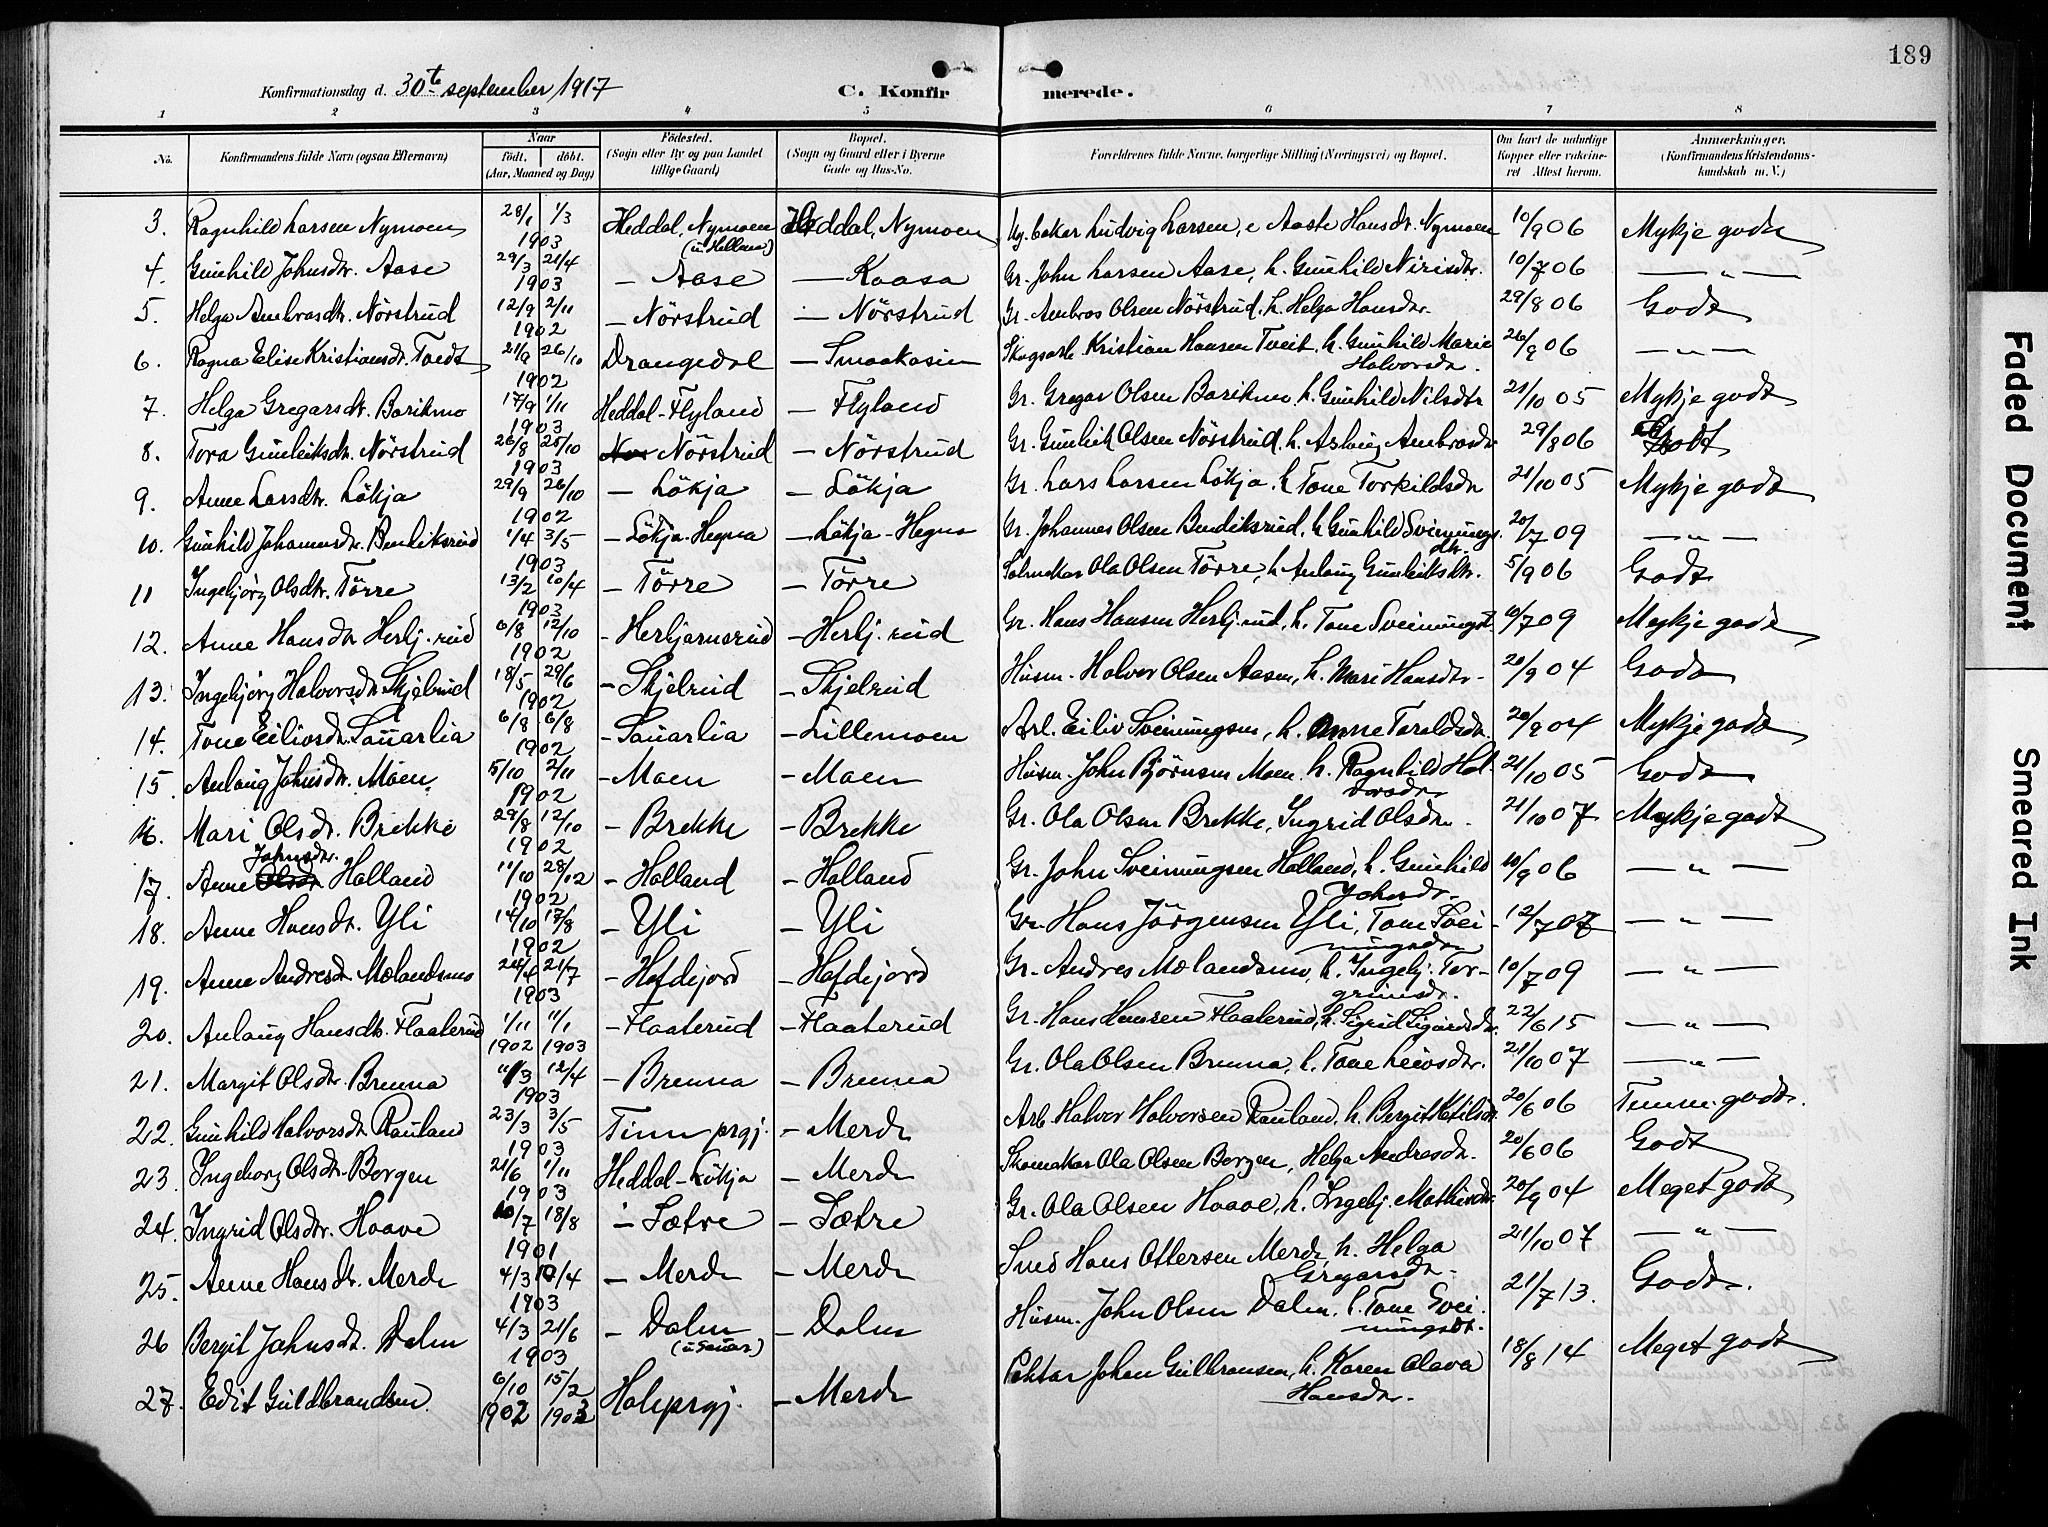 189
Konfirmationsdag d. 30te september 1917 C. Konfirmerede.
1 2 3 4 5 6 7 8
No. Konfirmandens fulde Navn (ogsaa Efternavn) Naar født. døbt. (Aar, Maaned og Dag) Fødested. (Sogn eller By og paa Landet tillige Gaard) Bopæl. (Sogn og Gaard eller i Byerne Gade og Hus-No.) Forældrenes fulde Navne, borgerlige Stilling (Næringsvei) og Bopæl. Om havt de naturlige Kopper eller vakcineret Attest herom. Anmærkninger. (Konfirmandens Kristendomskundskab m. V.)
3. Ragnhild Larsen Nymoen 28/1 1/3 1903 Heddal, Nymoen (u Helland) Heddal, Nymoen Ug. baker Ludvig Larsen, e Aaste Hansdr. Nymoen 10/9 06 Mykje godt
4. Gunhild Johnsdr. Aase 29/3 21/4 1903 - Aase - Kaasa Gr. John Larsen Aase, h. Gunhild Nirisdr. 10/7 06 - " -
5. Helga Ambrosdtr. Nörstrud 12/9 2/11 1902 - Nörstrud - Nörstrud Gr. Ambros Olsen Nörstrud, h. Helga Hansdr. 29/8 06 Godt
6. Ragna Elise Kristiansdr. Tvedt 21/9 26/10 1902 Drangedal - Smaakasin Skogsarb. Kristian Hansen Tveit, h. Gunhild Marie Halvorsdr. 26/9 06 - " -
7. Helga Gregarsdtr. Barikmo 17/9 1/11 1903 Heddal - Flyland - Flyland Gr. Gregar Olsen Barikmo, h. Gunhild Nilsdtr 21/10 05 Mykje godt
8. Tora Gunleiksdr. Nörstrud 26/8 25/10 1903 Nörstrud - Nörstrud Gr. Gunleik Olsen Nörstrud, h. Aslaug Ambrosdr 29/8 06 Godt
9. Anne Larsdtr. Lökja 29/9 26/10 1902 - Lökja - Lökja Gr. Lars Larsen Lökja, h Tone Torkildsdr 21/10 05 Mykje godt
10. Gunhild Johannesdr. Bendiksrud 1/4 3/5 1903 - Lökja-Hegna - Lökja-Hegna Gr. Johannes Olsen Bendiksrud, h Gunhild Sveinungsdtr. 20/7 09 - " -
11 Ingebjörg Olsdtr. Törre 13/2 10/4 1903 - Törre - Törre Salmakar Ola Olsen Törre, h Anlaug Gunleiksdtr. 5/9 06 Godt
12. Anne Hansdtr Herbj.rud 6/8 12/10 1902 - Herbjørnsrud - Herbj.rud Gr. Hans Hansen Herbj.rud, h. Tone Sveinungsd. 10/7 09 Mykje godt
13. Ingebjörg Halvorsdtr Skjelrud 18/5 29/6 1902 - Skjelrud - Skjelrud Husm. Halvor Olsen Aasen, h. Mari Hansdtr 20/9 04 Godt
14. Tone Eilivsdr. Sauarlia 6/8 6/8 1902 - Sauarlia - Lillemoen Arb. Eiliv Sveinungsen, h. Anne Taraldsdr. 20/9 04 Mykje godt
15. Anlaug Johnsdr. Moen 5/10 2/11 1902 - Moen - Moen Husm. John Björnsen Moen, h. Ragnhild Halvorsdr 21/10 05 Godt
16. Mari Olsdr. Brekke 29/8 12/10 1902 - Brekke - Brekke Gr. Ola Olsen Brekke, Ingrid Olsdr. 21/10 07 Mykje godt
17. Anne Johnsdr. Holland 11/10 28/12 1902 - Holland - Holland Gr. John Sveinungsen Holland, h. Gunhild Johnsdr. 10/9 06 - " -
18. Anne Hansdr. Yli 14/10 17/8 1902 - Yli - Yli Gr. Hans Jörgensen Yli, Tone Sveinungsdr 12/7 07 - " -
19. Anne Andresdr Mælandsmo 24/4 21/7 1903 - Hofdejord - Hofdejord Gr. Andres Mælandsmo, h. Ingebj. Torgrimsdr. 10/7 09 - " -
20. Anlaug Hansdtr. Flaaterud 1/11 1902 11/1 1903 - Flaaterud - Flaaterud Gr. Hans Hansen Flaaterud, h. Sigrid Sigurdsdr. 22/6 15 - " -
21. Margit Olsdtr. Brenna 11/3 12/4 1903 - Brenna - Brenna Gr. Ola Olsen Brenna, h. Tone Leivsdr. 21/10 07 - " -
22. Gunhild Halvorsdtr Rauland 23/3 3/5 1903 Tinn prgj. - Merde Arb. Halvor Halvorsen Rauland, h. Bergit Ketilsdr. 20/6 06 Temm. godt.
23. Ingeborg Olsdtr. Borgen 21/6 1/11 1903 Heddal - Lökja - Merde Skomakar Ola Olsen Borgen, Helga Andresdr. 20/6 06 Godt
24. Ingrid Olsdtr. Haave 10/7 18/8 1901 - Sætre - Sætre Gr. Ola Olsen Haave, h. Ingebj. Mathisdr. 20/9 04 Meget godt
25. Anne Hansdr. Merde 4/3 10/4 1903 - Merde - Merde Smed Hans Ottersen Merde, h. Helga Gregarsdr. 21/10 07 - " -
26 Bergit Johnsdr. Dalen 4/3 21/6 1903 - Dalen (u Sauar) - Dalen Husm. John Olsen Dalen, h. Tone Sveinungsdr. 21/7 13. Godt.
27. Edit Guldbrandsen 6/10 1902 15/2 1903 Hole prgj. - Merde Johan Gulbransen, h. Karen Olava Hansdr. 18/8 14 Meget godt
Faded Document
Smeared Ink